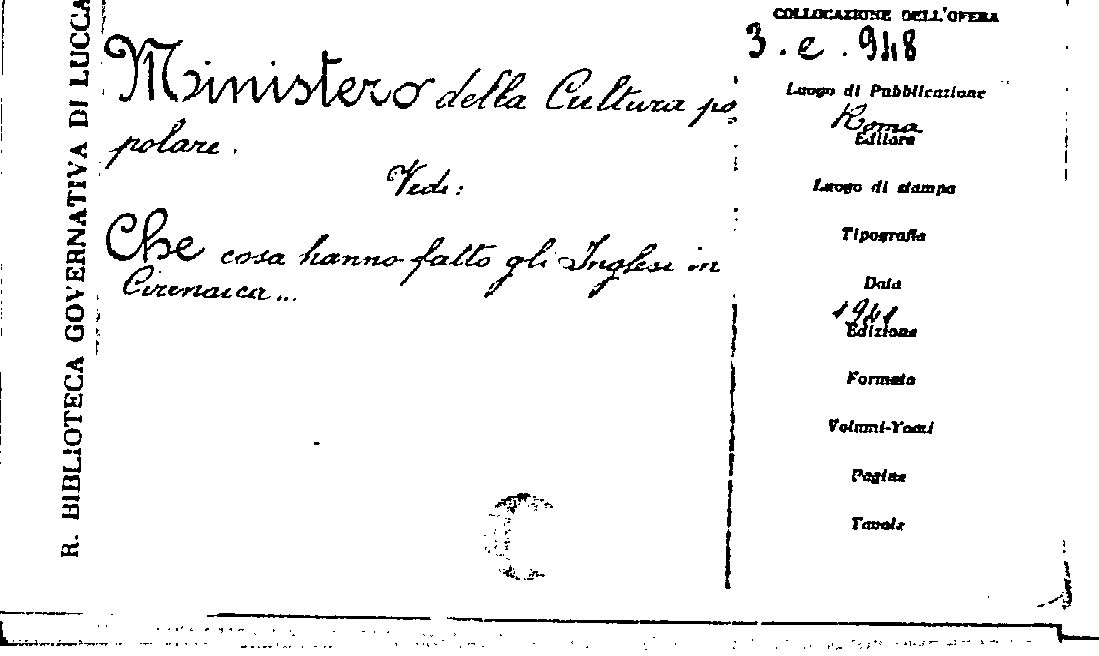 R. BIBLIOTECA GOVERNATIVA DI LUCCA
Ministero della Cultura po
polare.
Vedi:
Che cosa hanno fatto gli Inglesi in
Cirenaica...
COLLOCAZIONE DELL'OPERA
3.e.948
Luogo di Pubblicazione
Roma
Editore
Luogo di stampa
Tipografia
Data
1941
Edizione
Formato
Volumi-Tomi
Pagine
Tavole